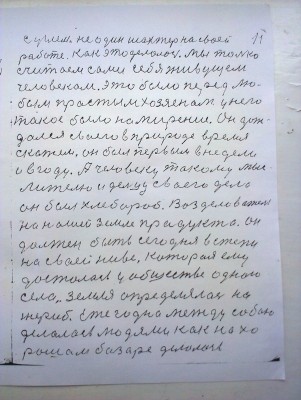 с углем. не один шахтер на своей 11
работе. как это делолос. мы толко
считаем сами себя живущем
человекам. это было перед лю-
бым прастим хозяенам у него
такое было намирение. он дож-
дался своего в природе время
скажем. он был первым в недели
и в году. А человеку такому мыс-
лителю и делцу своего дела
он был хлебароб. Возделователь
на нашей земле прадукта. он
должен быть сегодня в степи
на своей ниве, которая ему
досталась у обществе одного
села, земля определялас на
жериб. Ежегодна между собою
делолась людями как на хо
рошам базаре делолось